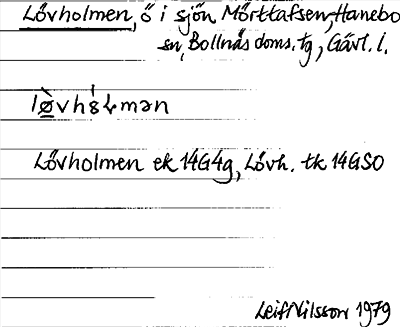 Lövholmen, ö i sjön Mörttatsen, Hanebo
sn, Bollnäs doms. tg, Gävl. l.
Lövholmen ek 14G4g, Lövh. tk 14GSO
Leif Nilsson 1979